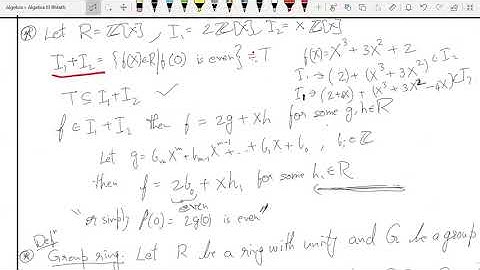 Algebra - Algebra El Bhilath
⊛ Let R = ℤ[x], I₁ = 2ℤ[x], I₂ = xℤ[x]
I₁+I₂ = {f(x)∈R | f(0) is even} =: T
f(x) = x³ + 3x² + 2
I₁ → (2) + (x³ + 3x²) ∈ I₂
I₁ → (2+4x) + (x³ + 3x² - 4x) ∈ I₂
T ⊆ I₁+I₂ ✓
f ∈ I₁+I₂ then f = 2g + xh for some g, h ∈ R
Let g = bₘxᵐ + bₘ₋₁xᵐ⁻¹ + ... + b₁x + b₀, bᵢ ∈ ℤ
then f = 2b₀ + xh₁ for some h₁ ∈ R
even
"or simply f(0) = 2g(0) is even"
Defⁿ
⊛ Group ring. Let R be a ring with unity and G be a group